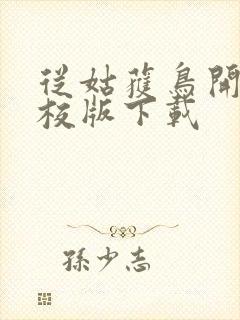 從姑獲鳥開
校版下載
孫少志